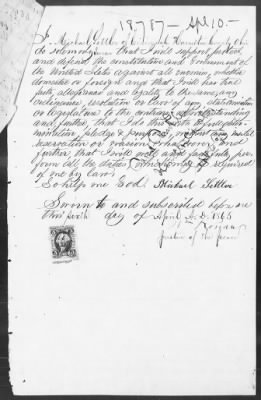 18787 - Apl 10 -
I, Michael Settler of Hamilton County Ohio
do solemnly swear that I will support, protect
and defend the constitution and Government of
the United States against all enemies, whether
domestic or foreign and that I will bear true
faith, allegiance and loyalty to the same, any
ordinance, resolution or law of any State Convention
or legislature to the contrary notwithstanding
and further, that I do this with a full determination
pledge & purpose, without any mental
reservation or evasion whatsoever and
further that I will well and faithfully per-
form all the duties which may be required
of me by law;
So help me God. Michael Settler
Sworn to and subscribed before me
this day of April A.D. 1865
Justice of the peace